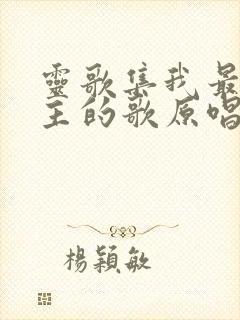 靈歌集我最
主的歌原唱
楊穎敏